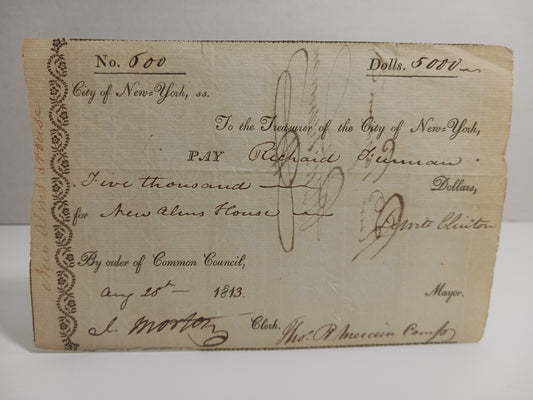 No. 600 Dolls. 5000
City of New-York, ss.
To the Treasurer of the City of New-York,
PAY Richard Furman
Five thousand Dollars,
for New Alms House
DeWitt Clinton
By order of Common Council,
Aug 28th 1813. Mayor.
J. Morton Clerk. Thos. R Mercein Compr
New Alms House